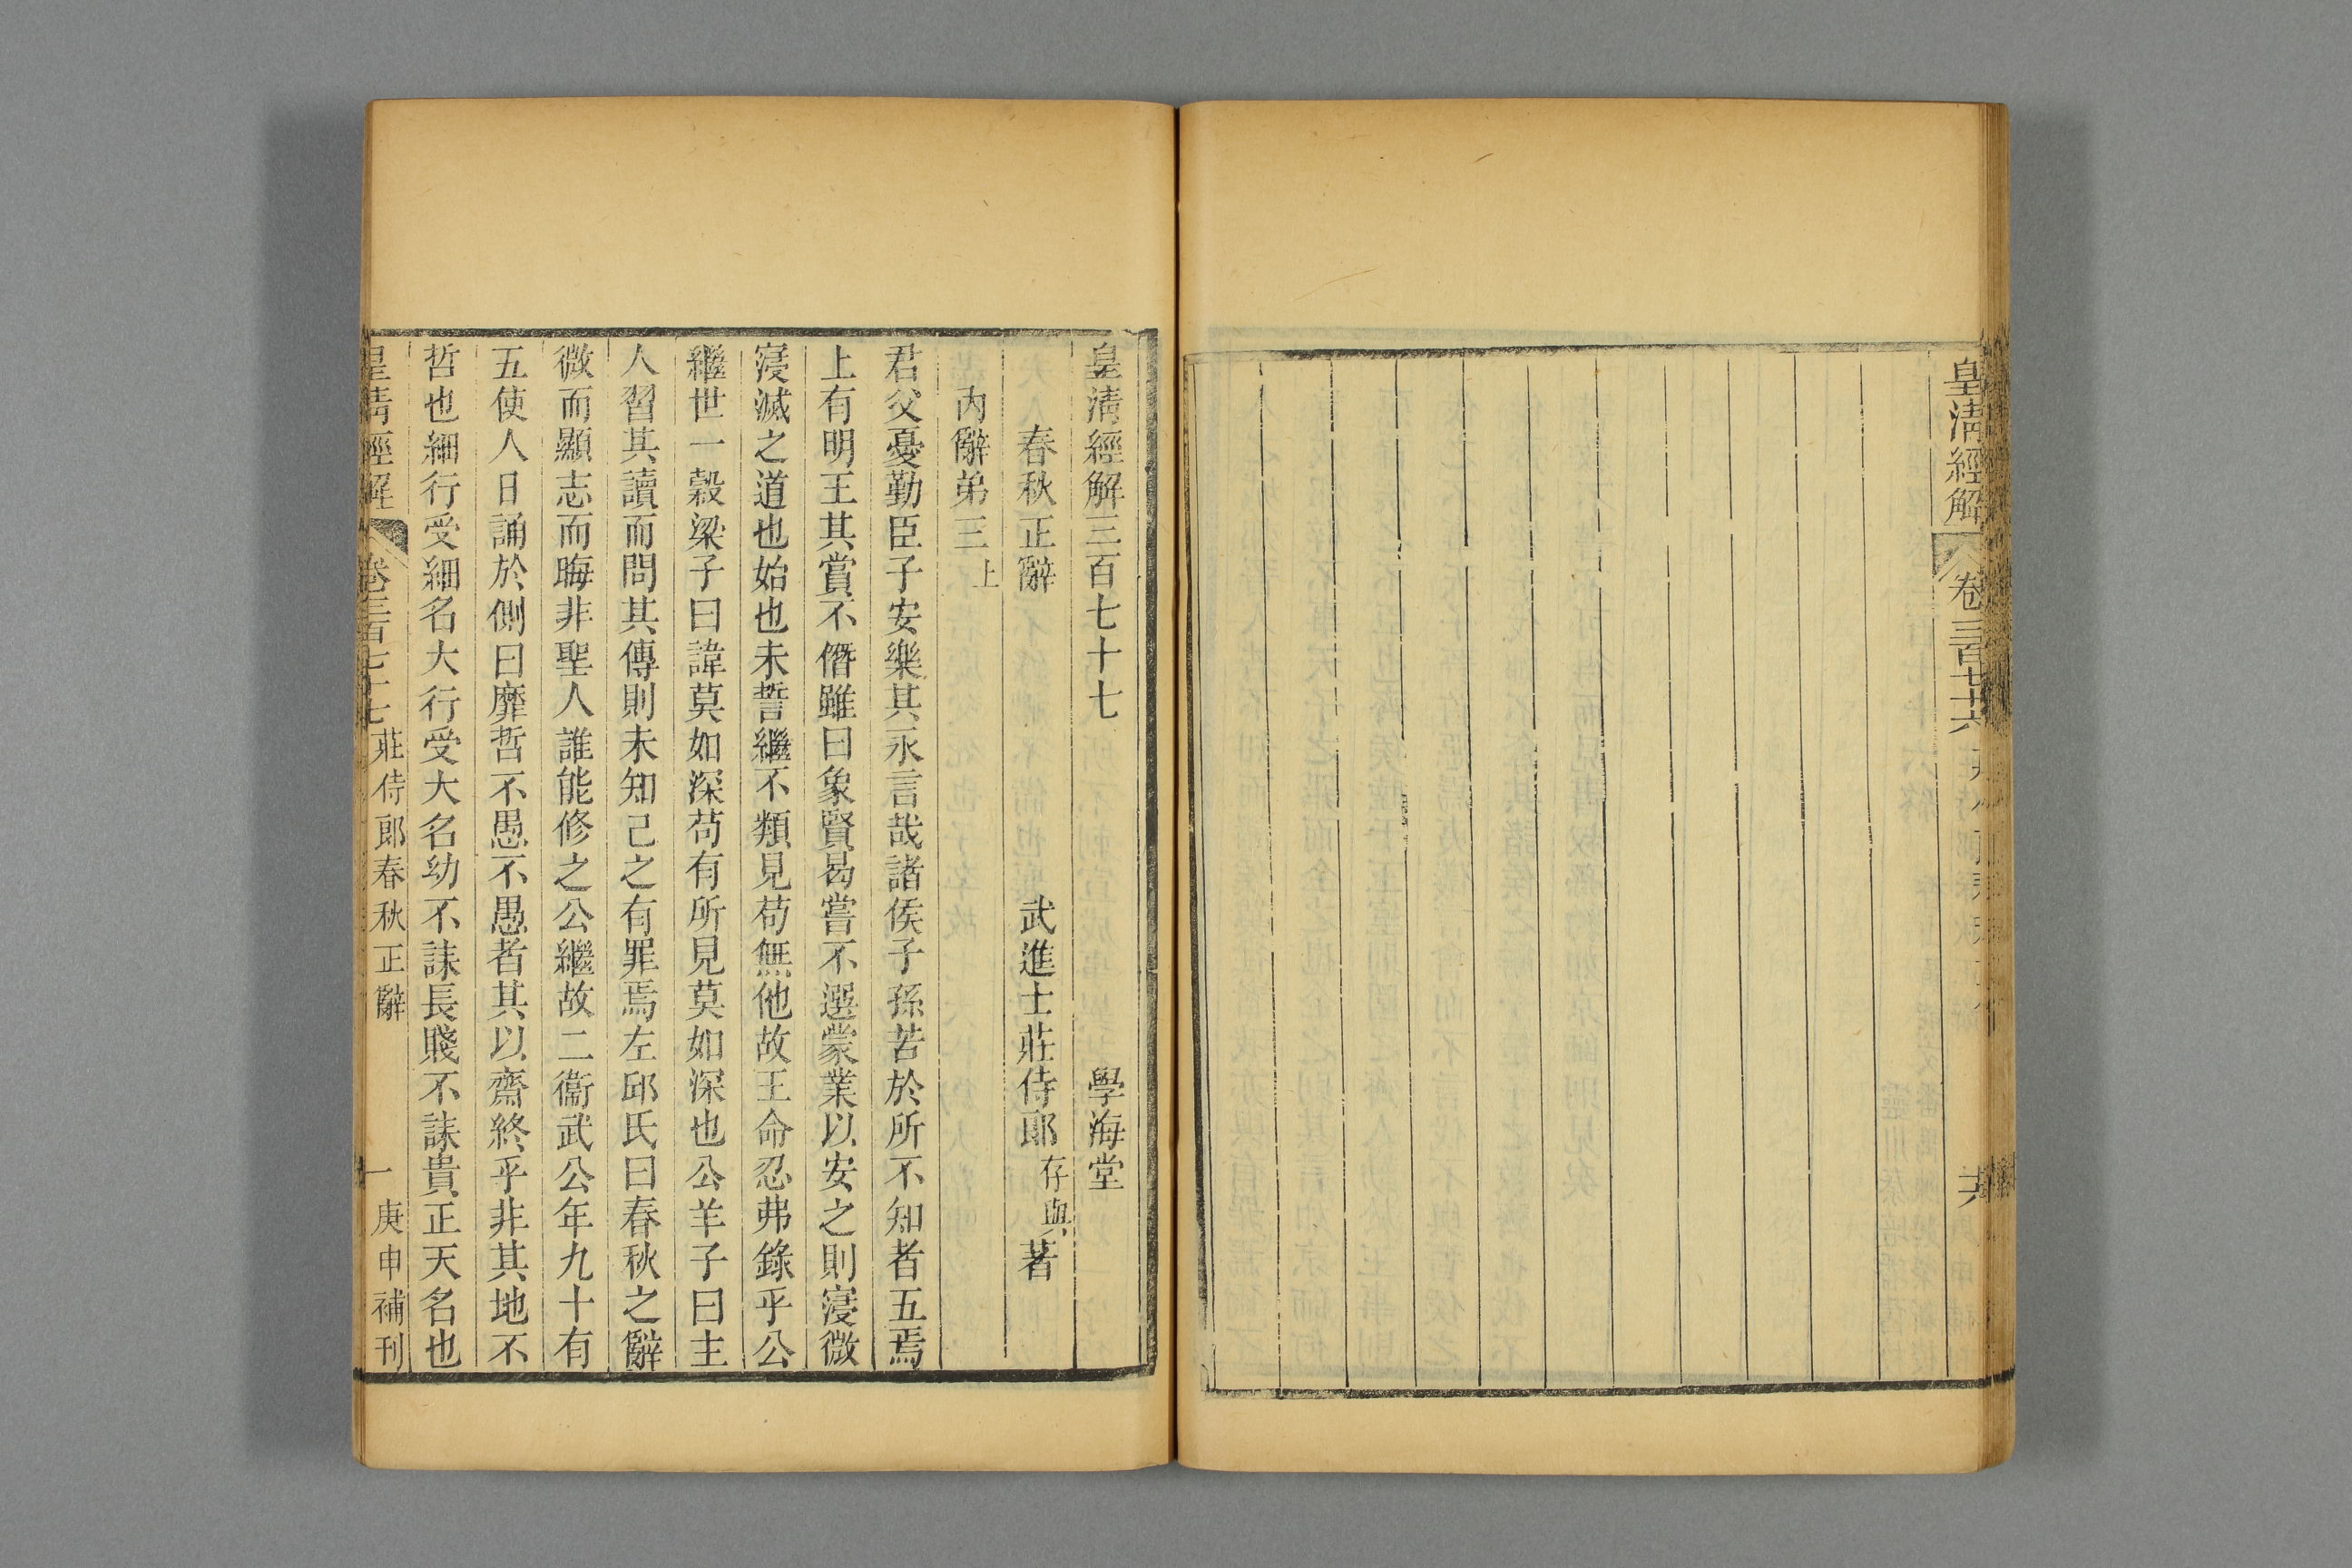 皇清經解
卷三百七十六
皇清經解三百七十七
學海堂
春秋正辭
武進士莊侍郎存與著
內辭弟三上
君父憂勤臣子安樂其永言哉諸侯子孫苦於所不知者五焉
上有明王其賞不僭雖曰象賢曷嘗不選蒙業以安之則寖微
寖滅之道也始也未誓繼不類見苟無他故王命忍弗錄乎公
繼世一穀梁子曰諱莫如深苟有所見莫如深也公羊子曰主
人習其讀而問其傳則未知己之有罪焉左邱氏曰春秋之辭
微而顯志而晦非聖人誰能修之公繼故二衞武公年九十有
五使人日誦於側曰靡哲不愚不愚者其以齋終乎非其地不
哲也細行受細名大行受大名幼不誄長賤不誄貴正天名也
皇清經解
卷三百七十七
莊侍郎春秋正辭
一
庚申補刊